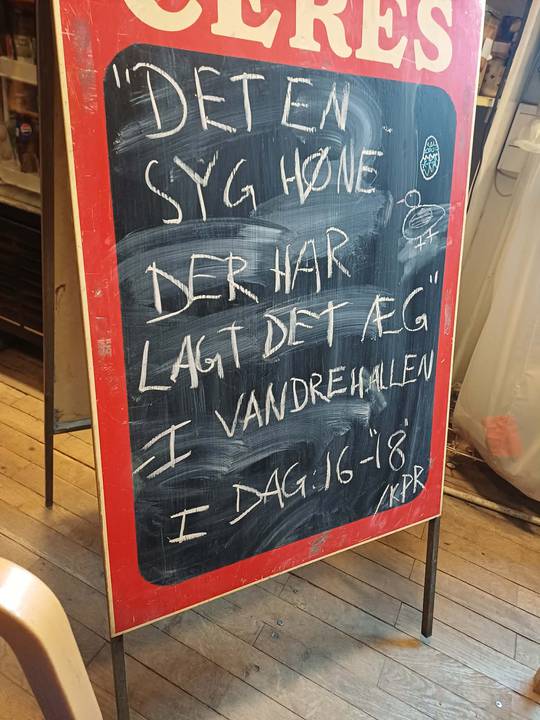 CERES
"DET EN
SYG HØNE
DER HAR
LAGT DET ÆG"
I VANDREHALLEN
I DAG: 16-"18"
/KPR